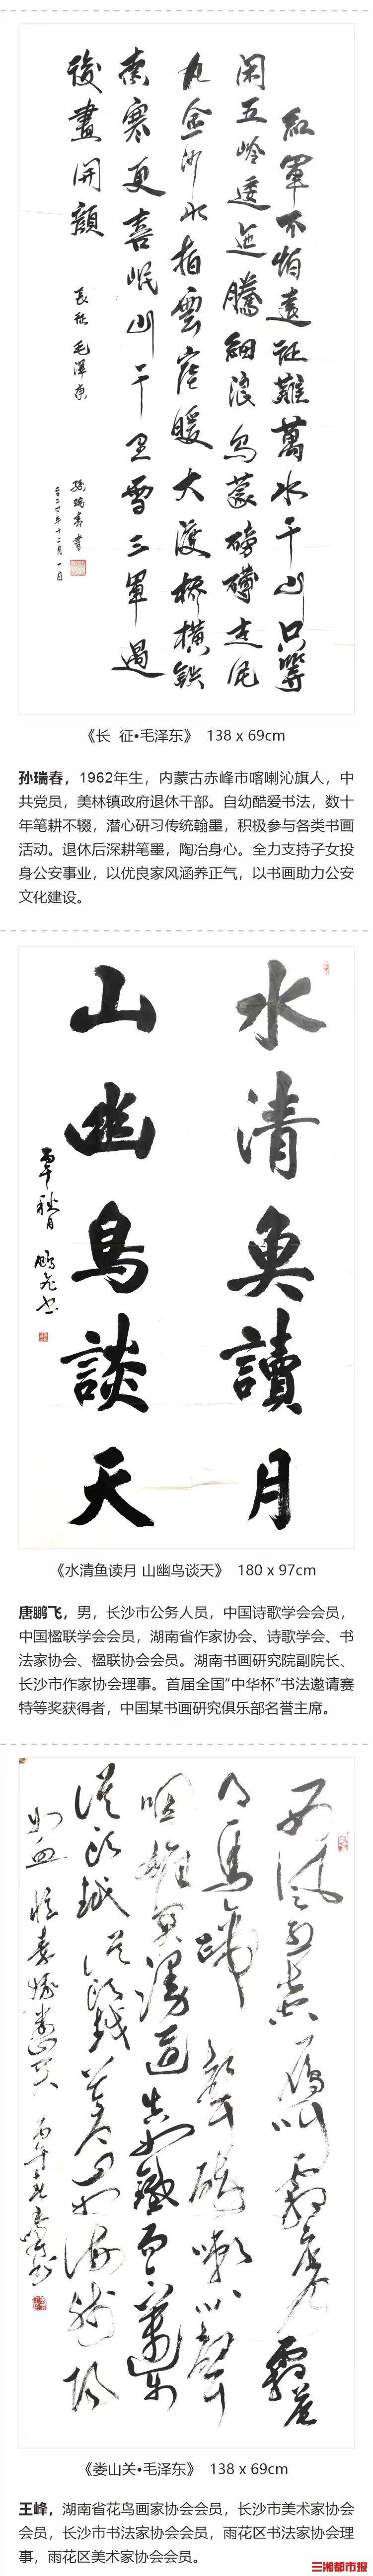 紅軍不怕遠征難萬水千山只等
閑五嶺逶迤騰細浪烏蒙磅礴走泥
丸金沙水拍雲崖暖大渡橋橫鐵
索寒更喜岷山千里雪三軍過
後盡開顏
長征 毛澤東
孫瑞春書
二〇二四年十二月一日
《长 征•毛泽东》 138 x 69cm
孙瑞春，1962年生，内蒙古赤峰市喀喇沁旗人，中
共党员，美林镇政府退休干部。自幼酷爱书法，数十
年笔耕不辍，潜心研习传统翰墨，积极参与各类书画
活动。退休后深耕笔墨，陶冶身心。全力支持子女投
身公安事业，以优良家风涵养正气，以书画助力公安
文化建设。
水清魚讀月
山幽鳥談天
秋月 鵬飛书
《水清鱼读月 山幽鸟谈天》 180 x 97cm
唐鹏飞，男，长沙市公务人员，中国诗歌学会会员，
中国楹联学会会员，湖南省作家协会、诗歌学会、书
法家协会、楹联协会会员。湖南书画研究院副院长、
长沙市作家协会理事。首届全国“中华杯”书法邀请赛
特等奖获得者，中国某书画研究俱乐部名誉主席。
西風烈長空雁叫霜晨月霜晨
月馬蹄聲碎喇叭聲
咽雄關漫道真如鐵而今邁步
從頭越從頭越蒼山如海殘陽
如血 憶秦娥婁山關
《娄山关•毛泽东》 138 x 69cm
王峰，湖南省花鸟画家协会会员，长沙市美术家协会
会员，长沙市书法家协会会员，雨花区书法家协会理
事，雨花区美术家协会会员。
三湘都市报